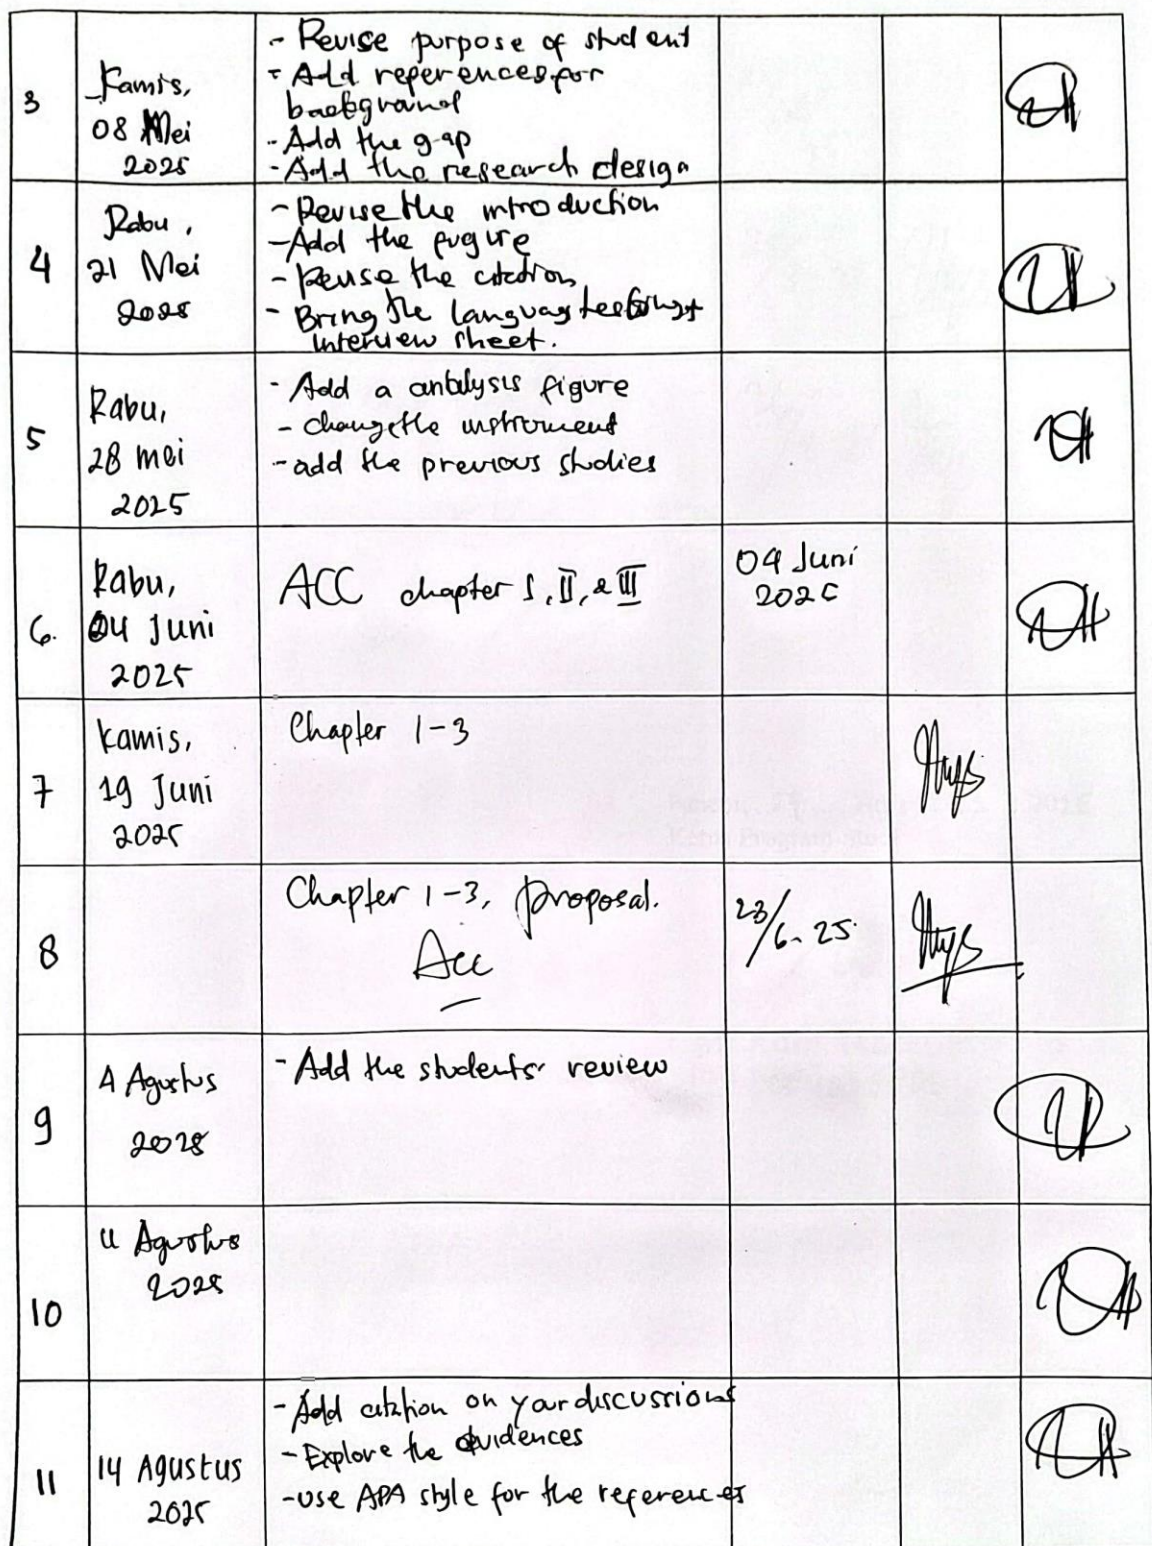 3
Kamis,
08 Mei
2025
- Revise purpose of student
- Add references for
background
- Add the gap
- Add the research design
4
Rabu,
21 Mei
2025
- Revise the introduction
- Add the fugire
- Revise the citation
- Bring the language testing +
interview sheet.
5
Rabu,
28 mei
2025
- Add a analysis figure
- change the instrument
- add the previous studies
6.
Rabu,
04 Juni
2025
ACC chapter I, II, & III
04 Juni
2025
7
Kamis,
19 Juni
2025
Chapter 1-3
8
Chapter 1-3, proposal.
Acc
23/6-25
9
4 Agustus
2025
- Add the students' review
10
11 Agustus
2025
11
14 Agustus
2025
- Add citation on your discussions
- Explore the evidences
- use APA style for the references